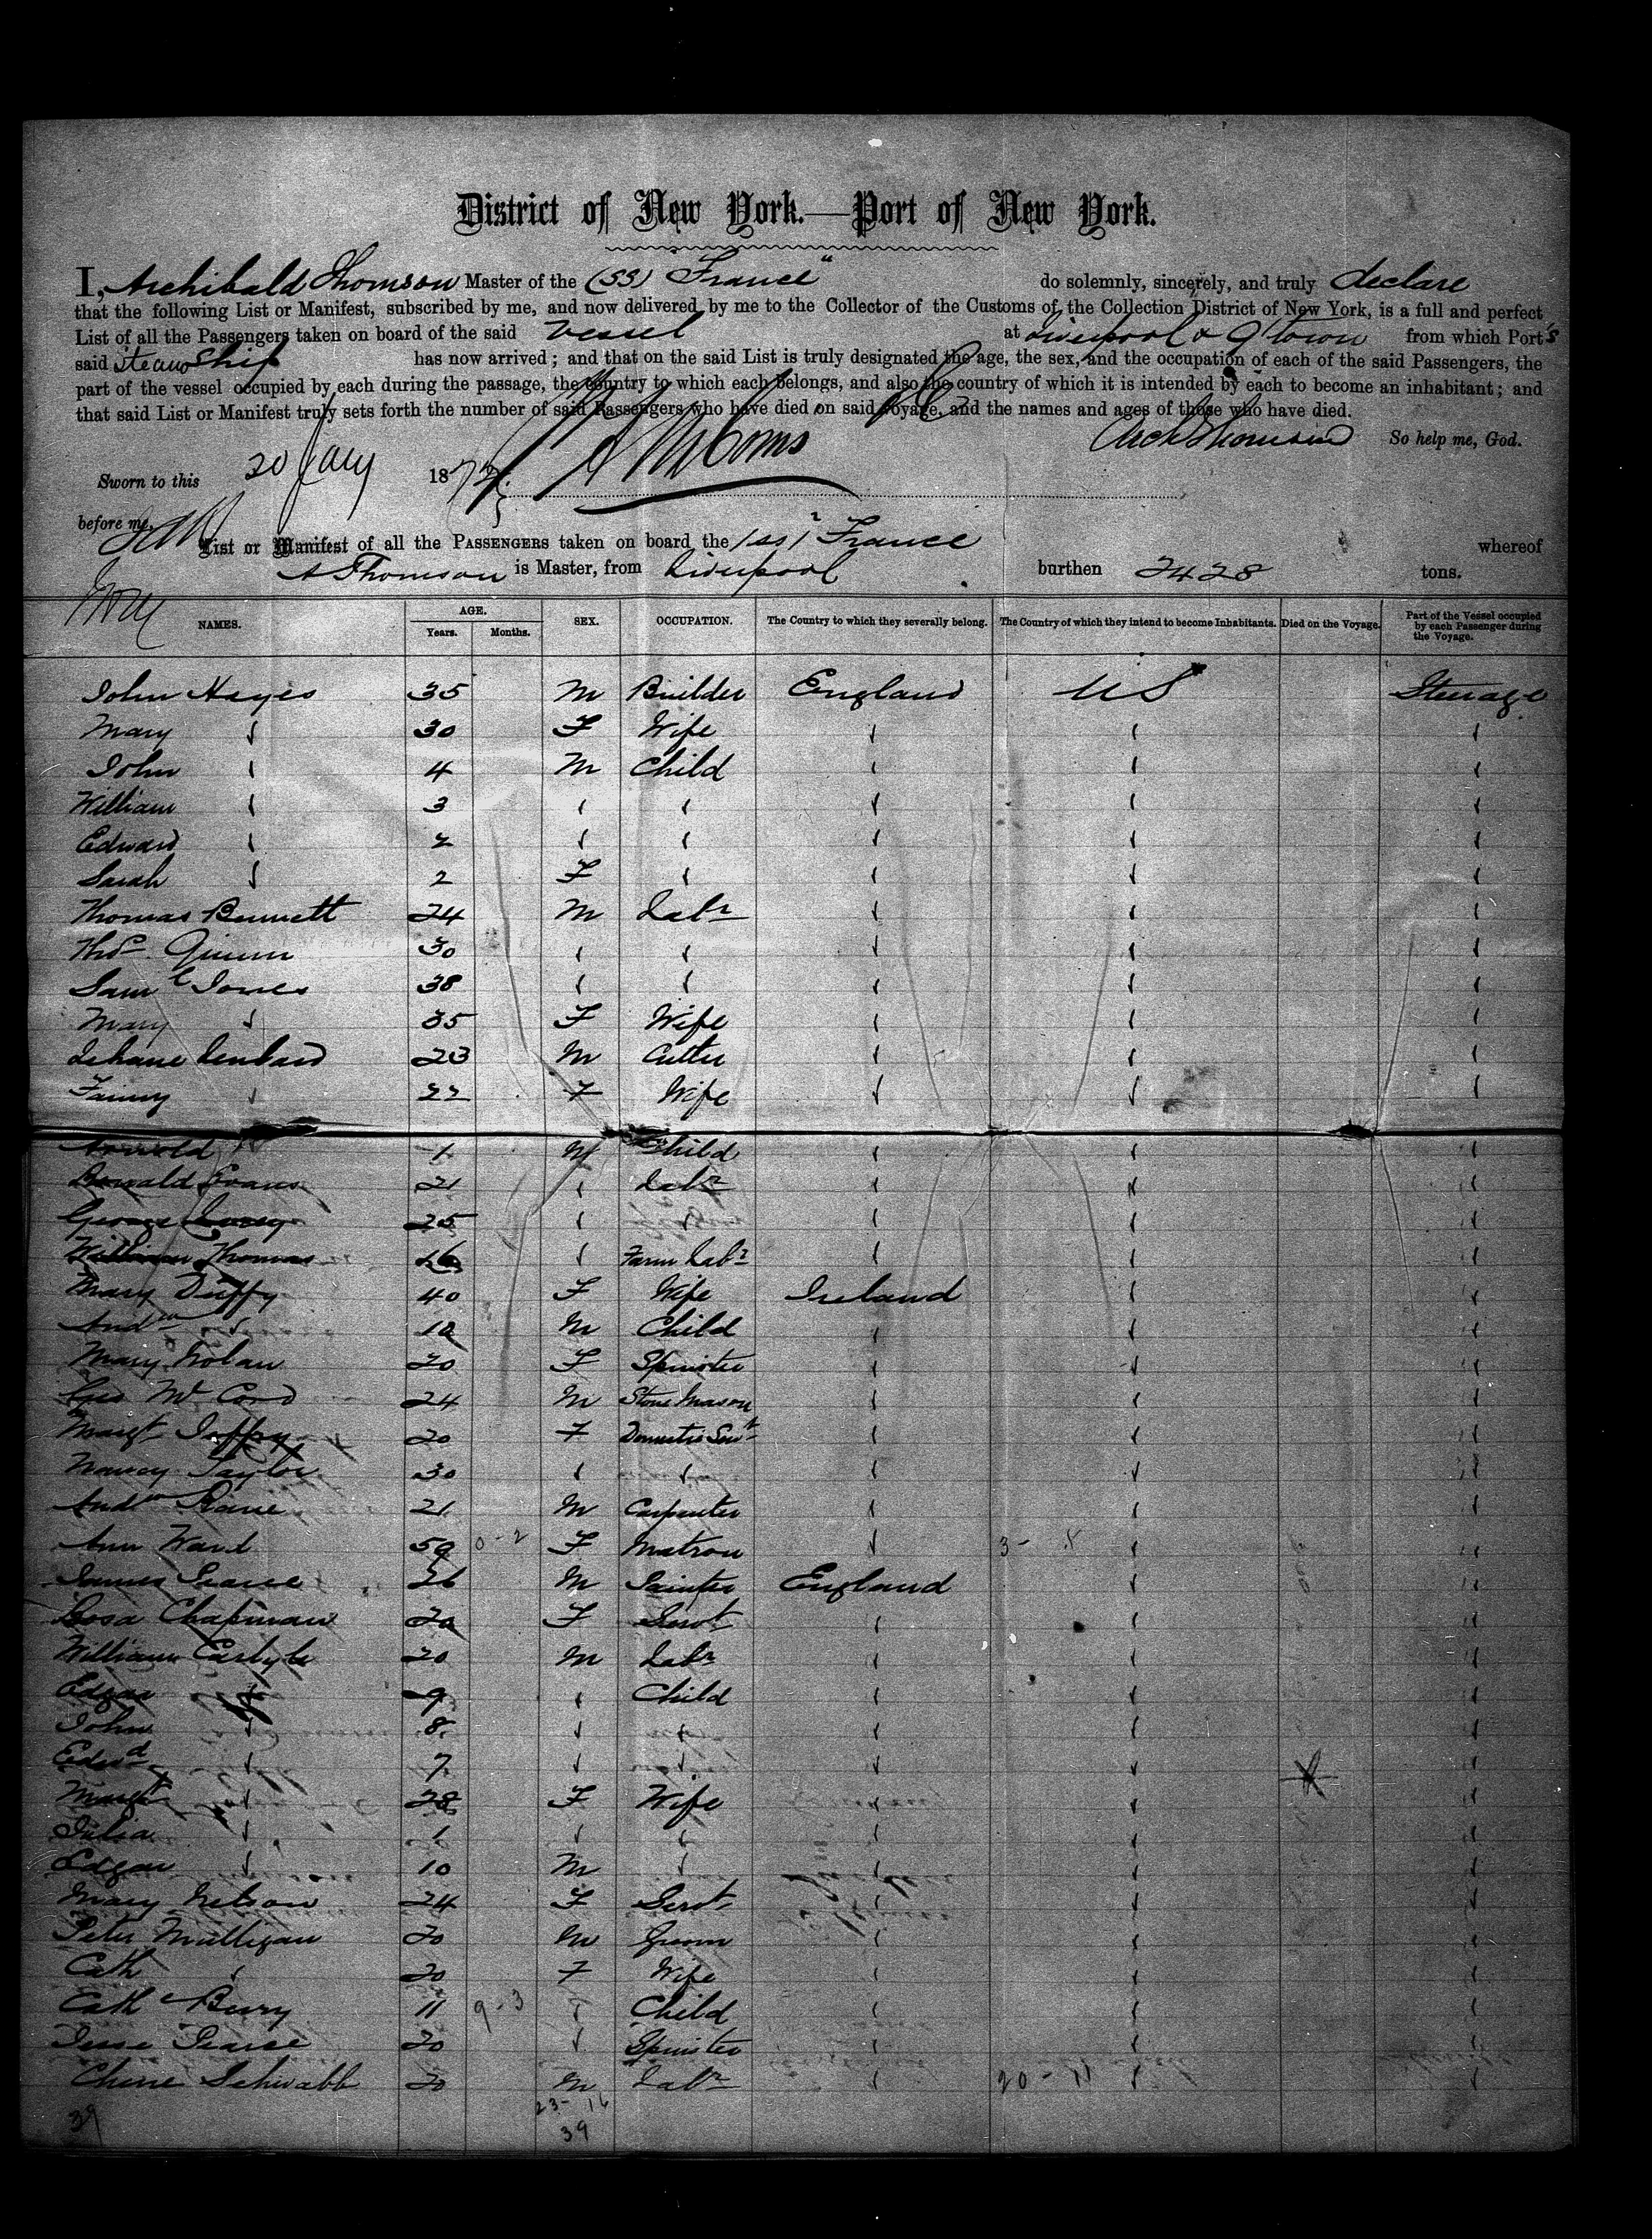 District of New York.—Port of New York.
I, Archibald Thomson Master of the (SS) "France" do solemnly, sincerely, and truly declare
that the following List or Manifest, subscribed by me, and now delivered by me to the Collector of the Customs of the Collection District of New York, is a full and perfect
List of all the Passengers taken on board of the said Vessel at Liverpool & Q'town from which Port's
said Steam Ship has now arrived; and that on the said List is truly designated the age, the sex, and the occupation of each of the said Passengers, the
part of the vessel occupied by each during the passage, the country to which each belongs, and also the country of which it is intended by each to become an inhabitant; and
that said List or Manifest truly sets forth the number of said Passengers who have died on said voyage, and the names and ages of those who have died.
Arch Thomson So help me, God.
Sworn to this 20 Jany 187
before me,
List or Manifest of all the PASSENGERS taken on board the (SS) "France whereof
A Thomson is Master, from Liverpool burthen 2428 tons.
NAMES. AGE. Years. Months. SEX. OCCUPATION. The Country to which they severally belong. The Country of which they intend to become Inhabitants. Died on the Voyage. Part of the Vessel occupied by each Passenger during the Voyage.
John Hayes 35 M Builder England US Steerage
Mary 30 F Wife
John 4 M Child
William 3
Edward 2
Sarah 2 F
Thomas Bennett 24 M Labr
Thos Quinn 30
Saml Jones 38
Mary 35 F Wife
23 M Cutter
Fanny 22 F Wife
Arnold 1 M Child
Evans 21 Labr
George 25
William Thomas 26 Farm Labr
Mary Duffy 40 F Wife Ireland
Andw 10 M Child
Mary Nolan 20 F Spinster
Geo McCord 24 M Stone Mason
Margt Jeffry 20 F Domestic Servt
Nancy Taylor 30
Andw 21 M Carpenter
Ann Ward 59 0-2 F Matron 3-
James Pearce 26 M Painter England
Rosa Chapman 20 F Servt
William Carlyle 20 M Labr
Edgar 9 Child
John 8
Edwd 7
Margt 28 F Wife
Julia 1
Edgar 10 M
Mary Nelson 24 F Servt
Peter Mulligan 20 M Groom
Cath 20 F Wife
Cath Berry 11 9-3 Child
Jesse Pearce 20 Spinster
Schwabb 20 M Labr 20-11
39 23-16
39